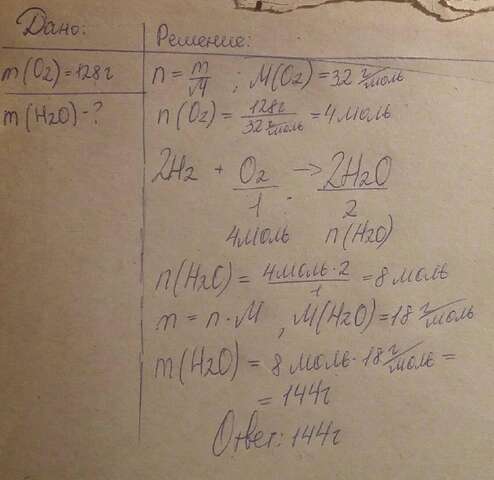 Дано:
m(O2)=128г
m(H2O)-?
Решение:
n=m/M; M(O2)=32 г/моль
n(O2)=128г/32 г/моль=4моль
2H2 + O2 → 2H2O
1 : 2
4моль n(H2O)
n(H2O)=4моль·2/1=8 моль
m=n·M, M(H2O)=18 г/моль
m(H2O)=8 моль·18 г/моль=
=144г
Ответ: 144г